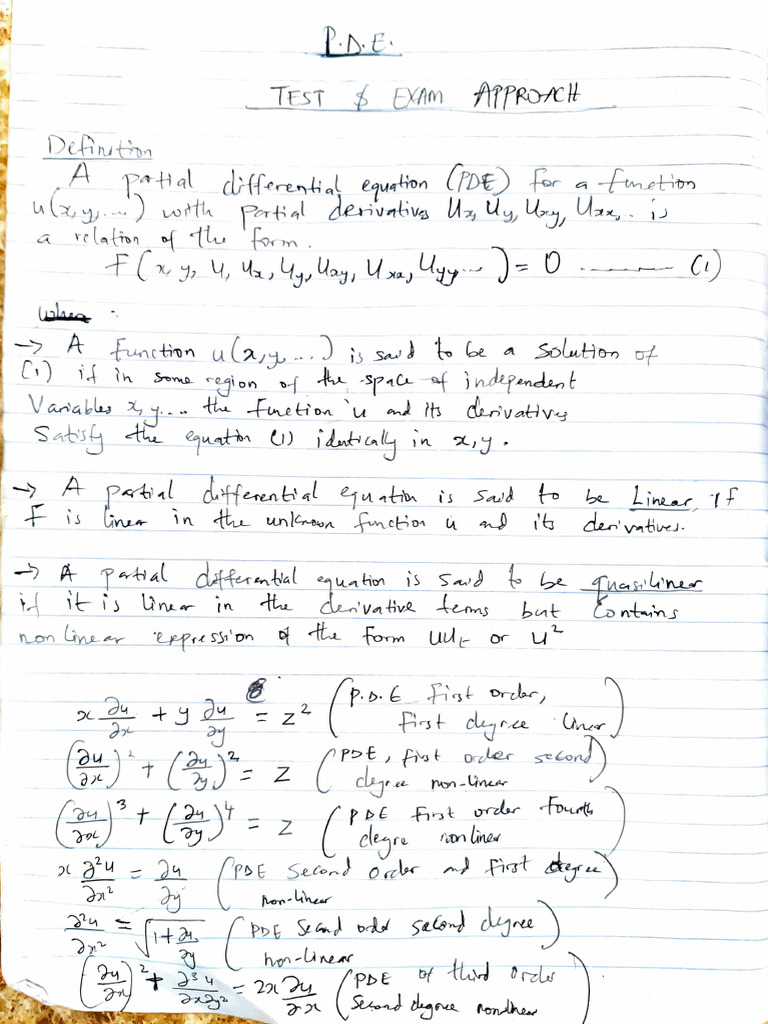 P.D.E.
TEST & EXAM APPROACH
Definition
A partial differential equation (PDE) for a function
u(x,y,...) with partial derivatives Ux, Uy, Uxy, Uxx,.. is
a relation of the form.
F(x y, u, Ux, Uy, Uxy, Uxx, Uyy...) = 0 ------- (1)
→ A function u(x,y,...) is said to be a solution of
(1) if in some region of the space of independent
Variables x,y.... the function u and its derivatives
Satisfy the equation (1) identically in x,y.
→ A partial differential equation is said to be Linear, if
F is linear in the unknown function u and its derivatives.
→ A partial differential equation is said to be quasilinear
if it is linear in the derivative terms but contains
non linear expression of the form UUt or U²
x ∂u/∂x + y ∂u/∂y = z² (P.D.E First order,
first degree linear)
(∂u/∂x)² + (∂u/∂y)² = z (PDE, first order second
degree non-linear)
(∂u/∂x)³ + (∂u/∂y)⁴ = z (PDE first order fourth
degre nonliner)
x ∂²u/∂x² = ∂u/∂y (PDE Second order and first degree
non-linear)
∂²u/∂x² = √(1 + ∂u/∂y) (PDE Second order second degree
non-linear)
(∂u/∂x)² + ∂³u/∂x∂y² = 2x ∂u/∂x (PDE of third order
Second degree nonlinear)